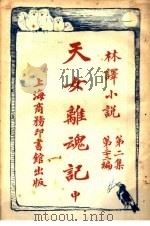 林譯小說
第二集
天女離魂記 中
上海商務印書館出版